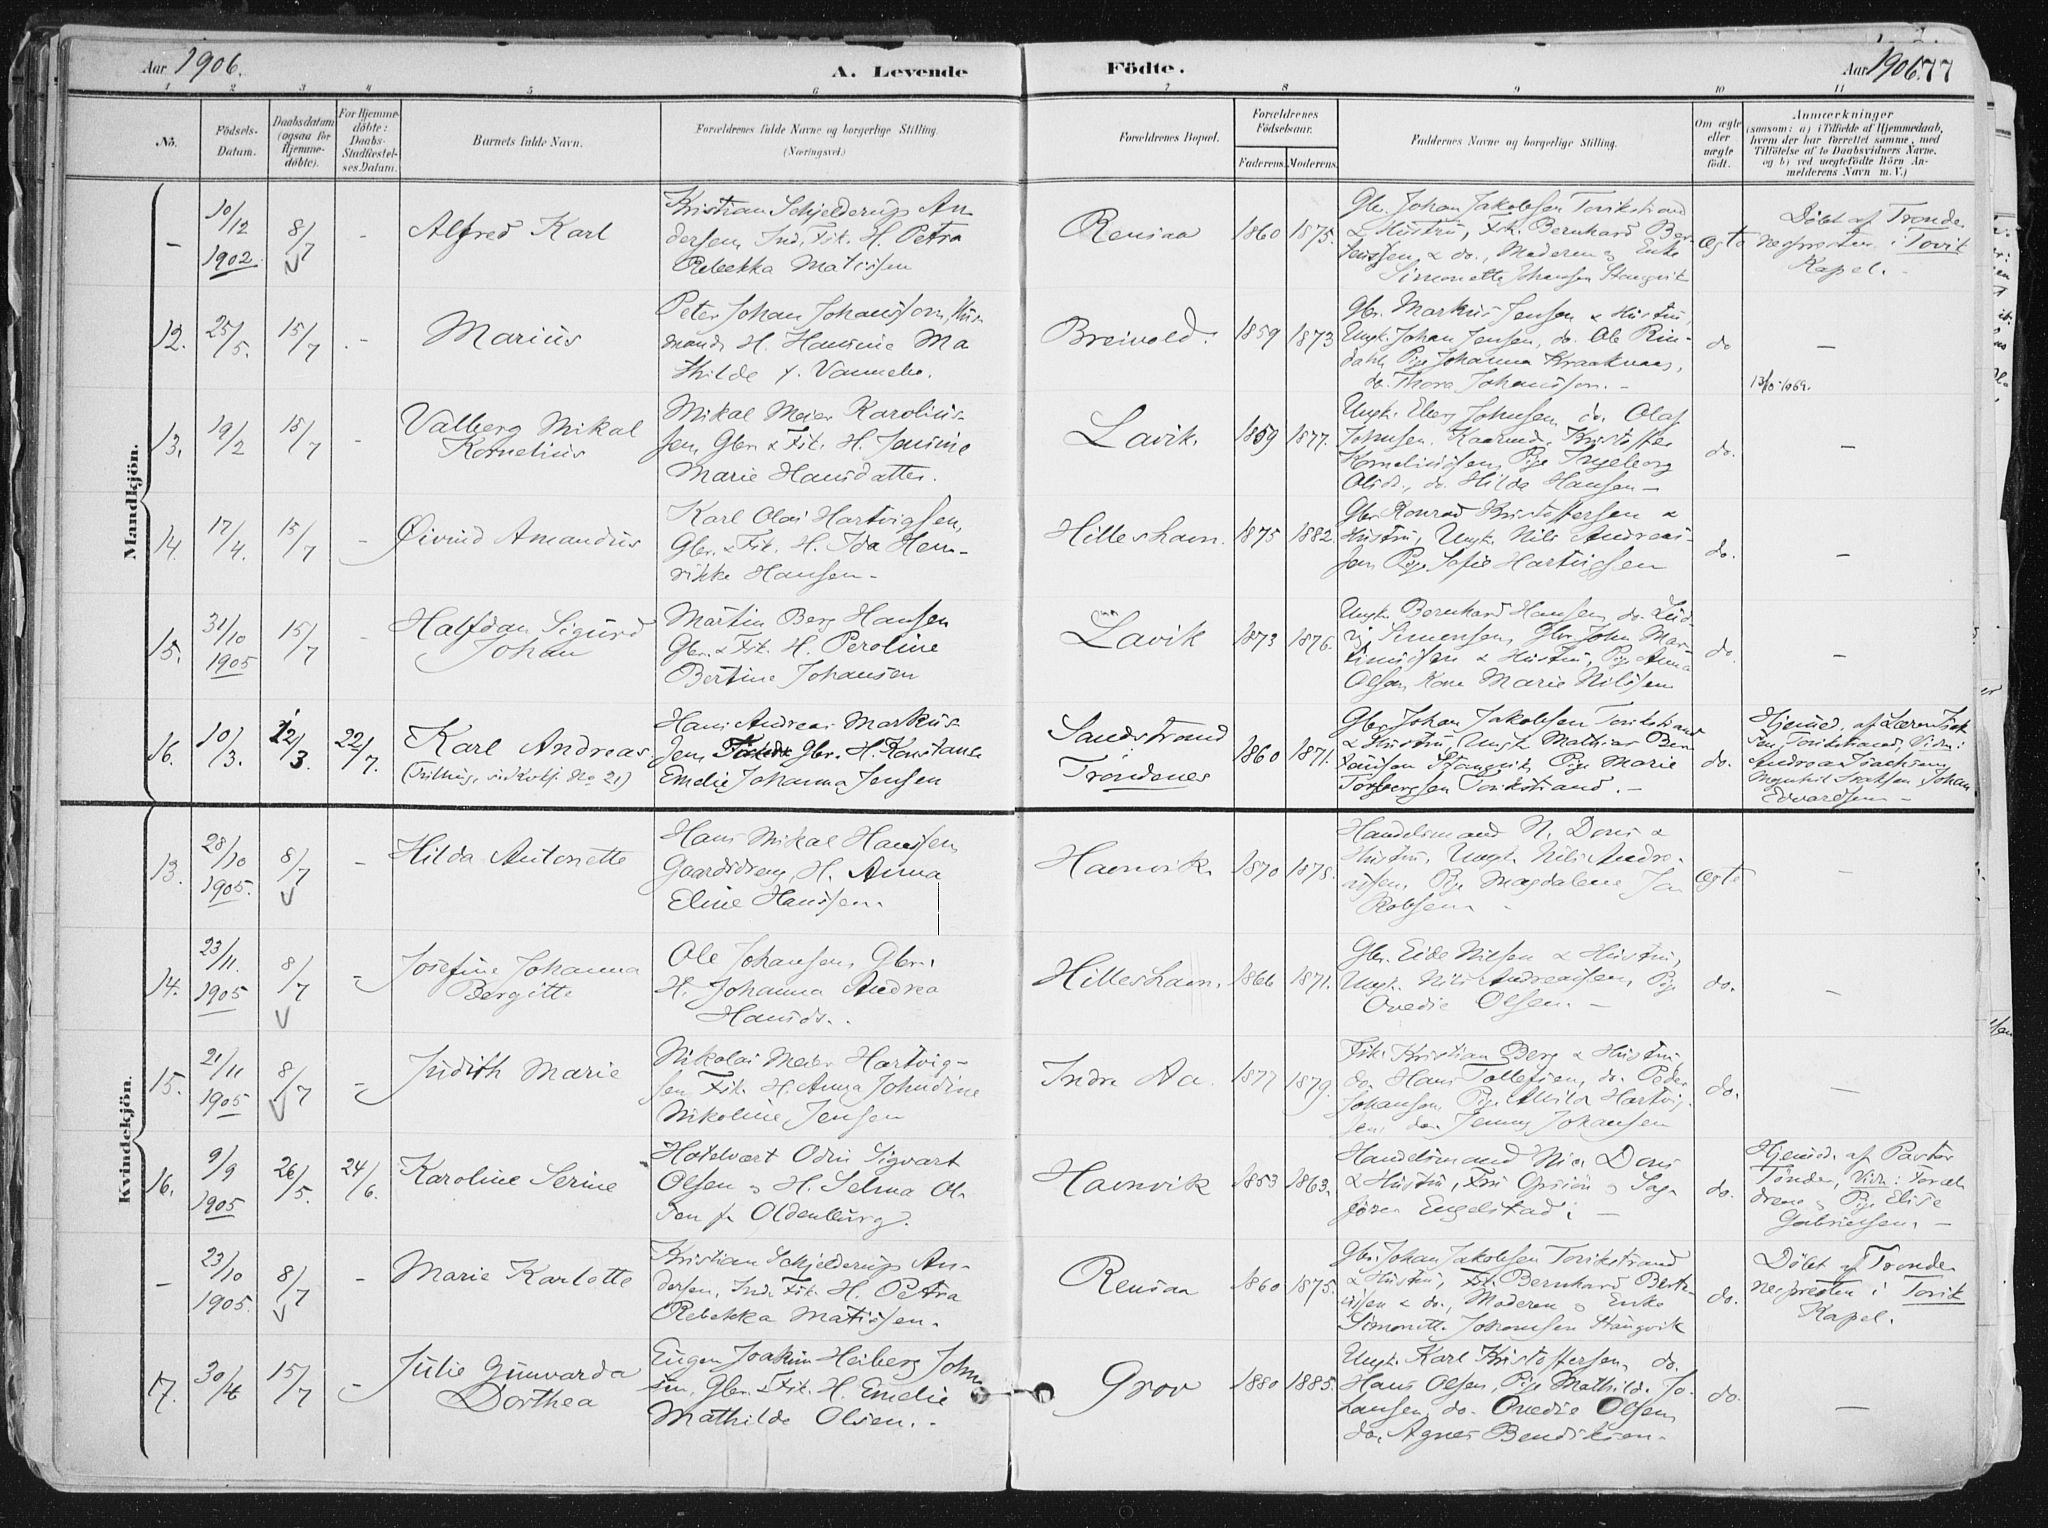 Aar 1906.
A. Levende
Födte.
Aar 1906. 77
1 2 3 4 5 6 7 8 9 10 11
No.
Födsels-
Datum.
Daabsdatum
(ogsaa for
Hjemme-
döbte).
For Hjemme-
döbte:
Daabs-
Stadfæstel-
ses Datum.
Barnets fulde Navn.
Forældrenes fulde Navne og borgerlige Stilling.
(Næringsvei.)
Forældrenes Bopæl.
Forældrenes
Födselsaar.
Faderens. Moderens.
Faddernes Navne og borgerlige Stilling.
Om ægte
eller
uægte
födt.
Anmærkninger
(saasom: a) i Tilfælde af Hjemmedaab,
hvem der har forrettet samme, med
Tilföielse af to Daabsvidners Navne.
og b) ved uægtefödte Börn An-
melderens Navn m. V.)
Mandkjön.
–
10/12
1902
8/7
-
Alfred Karl
Kristian Schjelderup An-
dersen, Ind. Fsk. H. Petra
Rebekka Matissen
Rensaa
1860 1875.
Gbr. Johan Jakobsen Tovikstrand
& Hustru, Fsk. Bernhard Ber-
& do., Moderen og Enke
Simonette Johansen Stangvik
ægte
Döbt af Tronde-
nespresten i Tovik
Kapel.
12.
25/5.
15/7
-
Marius
Peter Johan Johansson, Hus-
mand, H. Hansine Ma-
thilde f. Vannebo.
Breivold.
1859 1873
Gbr. Markus Jensen & Hustru,
Ungk. Johan Jensen, do. Ole Rin-
dahl, Pige Johanna Kraaknaas,
do. Thora Johansson. -
do
–
13.
19/2
15/7
-
Valberg Mikal
Kornelius
Mikal Meier Karolius-
sen, Gbr. & Fsk. H. Jensine
Marie Hansdatter.
Lavik.
1859 1877.
Ungk. Eberg Johnsen, do. Olaf
Johnsen, Kaarmd. Kristoffer
Korneliussen, Pige Ingeborg
Olsd., do. Hilda Hansen –
do.
13/10-1969.
–
14.
17/4.
15/7
-
Øivind Amandus
Karl Olai Hartvigsen,
Gbr. & Fsk. H. Ida Hen-
rikke Hansen -
Hilleshavn.
1875 1882.
Gbr. Konrad Kristoffersen &
Hustru, Ungk. Nils Andreas-
sen, Pige Sofie Hartvigsen
do.
–
15.
31/10
1905
15/7
-
Halfdan Sigurd
Johan
Martin Berg Hansen
Gbr. & Fsk. H. Peroline
Bertine Johansen
Lavik
1873 1876.
Ungk. Bernhard Hansen, do. Lud-
vig Simonsen, Gbr. John Mar-
tinussen & Hustru, Pige Anna
Olsen, Kone Marie Nilssen
do.
–
16.
10/3.
12/3
22/7.
Karl Andreas
(Tvilling, se Kvkj. No 21)
Hans Andreas Markus-
sen, Gbr. H. Konstanse
Emelie Johanna Jensen
Sandstrand
Trondenes
1860 1871.
Gbr. Johan Jakobsen Tovikstrand
& Hustru, Ungk. Mathias Bern-
Stangvik, Pige Marie
Torbergsen Tovikstrand. -
do.
Hjemd. af Lærer Isak-
sen, Tovikstrand, Vidn:
Andrea Joachimsen,
Magnhil Isaksen, Johan
Edvardsen –
Kvindekjön.
13.
28/10
1905.
8/7
-
Hilda Antonette
Hans Mikal Hanssen,
Gaardsdreng, H. Anna
Eline Hanssen.
Havnvik.
1870 1878.
Handelsmand N. Dons &
Hustru, Ungk. Nils Andre-
assen, Pige Magdalene Ja-
kobsen
ægte
–
14.
23/11.
1905
8/7
-
Josefine Johanna
Bergitte
Ole Johansen, Gbr.
H. Johanna Andrea
Hansd.
Hilleshavn.
1866 1871.
Gbr. Eide Nilsen & Hustru,
Ungk. Nils Andreassen, Pige
Ovedie Olsen. –
do.
–
15.
21/11
1905
8/7
-
Judith Marie
Nikolai Meier Hartvig-
sen, Fsk. H. Anna Johndine
Nikoline Jensen
Indre Aa.
1877 1879.
Fsk. Kristian Berg & Hustru
do. Hans Tollefsen, do. Peder
Johansen, Pige Alvild Hartvig-
sen, do. Jenny Johansen
do.
–
16.
9/9
1905
26/5.
24/6.
Karoline Serine
Hotelvert Odin Sigvart
Olsen og H. Selma Ol-
sen f. Oldenburg.
Havnvik
1853 1863.
Handelsmand Nic. Dons
& Hustru, Fru og Sag-
förer Engelstad. –
do.
Hjemd. af Pastor
Tönder, Vidn:
og Pige Elise
Gabrielsen. –
–
23/10
1905.
8/7
-
Marie Karlotte
Kristian Schjelderup An-
dersen, Ind. Fsk. H. Petra
Rebekka Matissen.
Rensaa
1860 1875.
Gbr. Johan Jakobsen Tovikstrand
& Hustru, Fsk. Bernhard Bernt-
& do., Moderen og Enke
Simonette Johansen Stangvik
do.
Döbt af Tronde-
nespresten i Tovik
Kapel.
17.
30/4
15/7
-
Julie Gunvarda
Dorthea
Eugen Joakim Heiberg John-
sen, Gbr. & Fsk. H. Emelie
Mathilde Olsen. -
Grov
1880 1885.
Ungk. Karl Kristoffersen, do.
Hans Olsen, Pige Mathilde Jo-
hansen, do. Ovedie Olsen,
do. Agnes Bendiksen.
do.
–